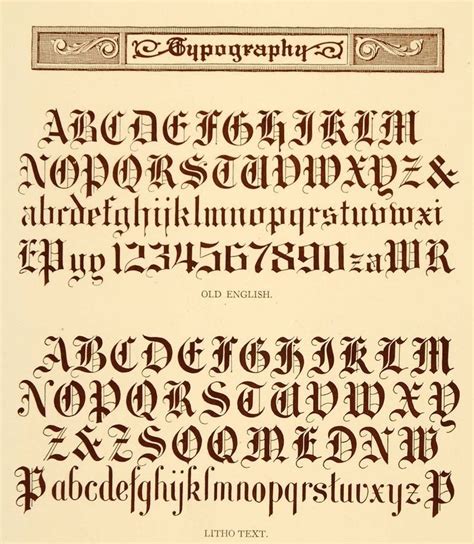 Typography
ABCDEFGHIKLM
NOPQRSTUVWXYZ&
abcdefghijklmnopqrstuvwxi
EPyy1234567890zaWR
OLD ENGLISH.
ABCDEFGHIKLM
NOPQRSTUVWXY
Z&ZSOQMEDNW
PabcdefghijklmnopqrstuvwxyzP
LITHO TEXT.